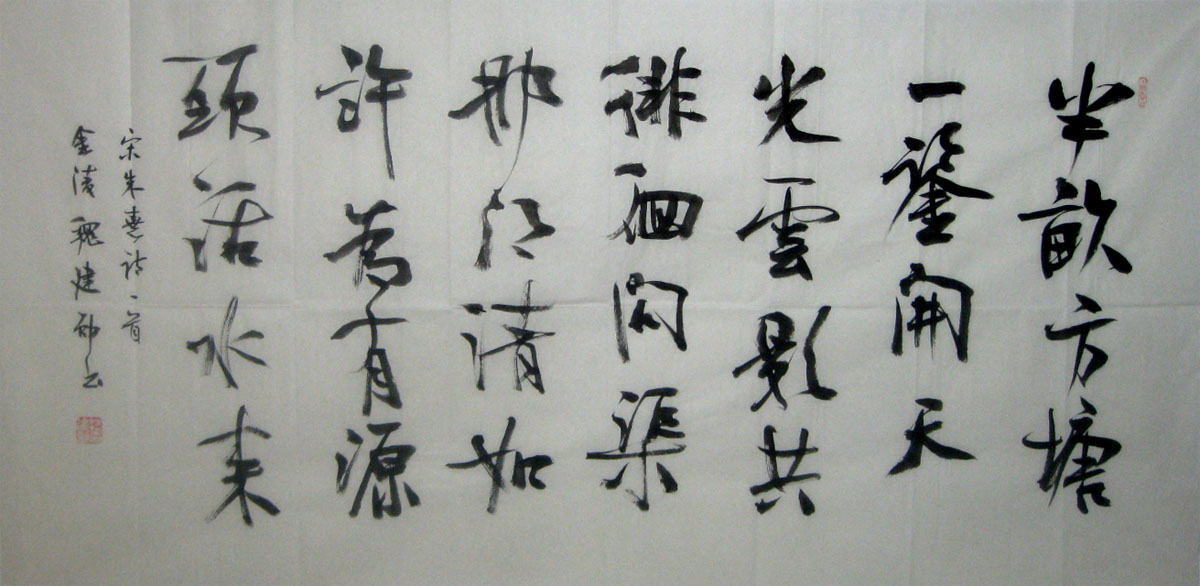 半畝方塘
一鑒開天
光雲影共
徘徊問渠
那得清如
許為有源
頭活水来
宋朱熹詩一首
金陵魏建